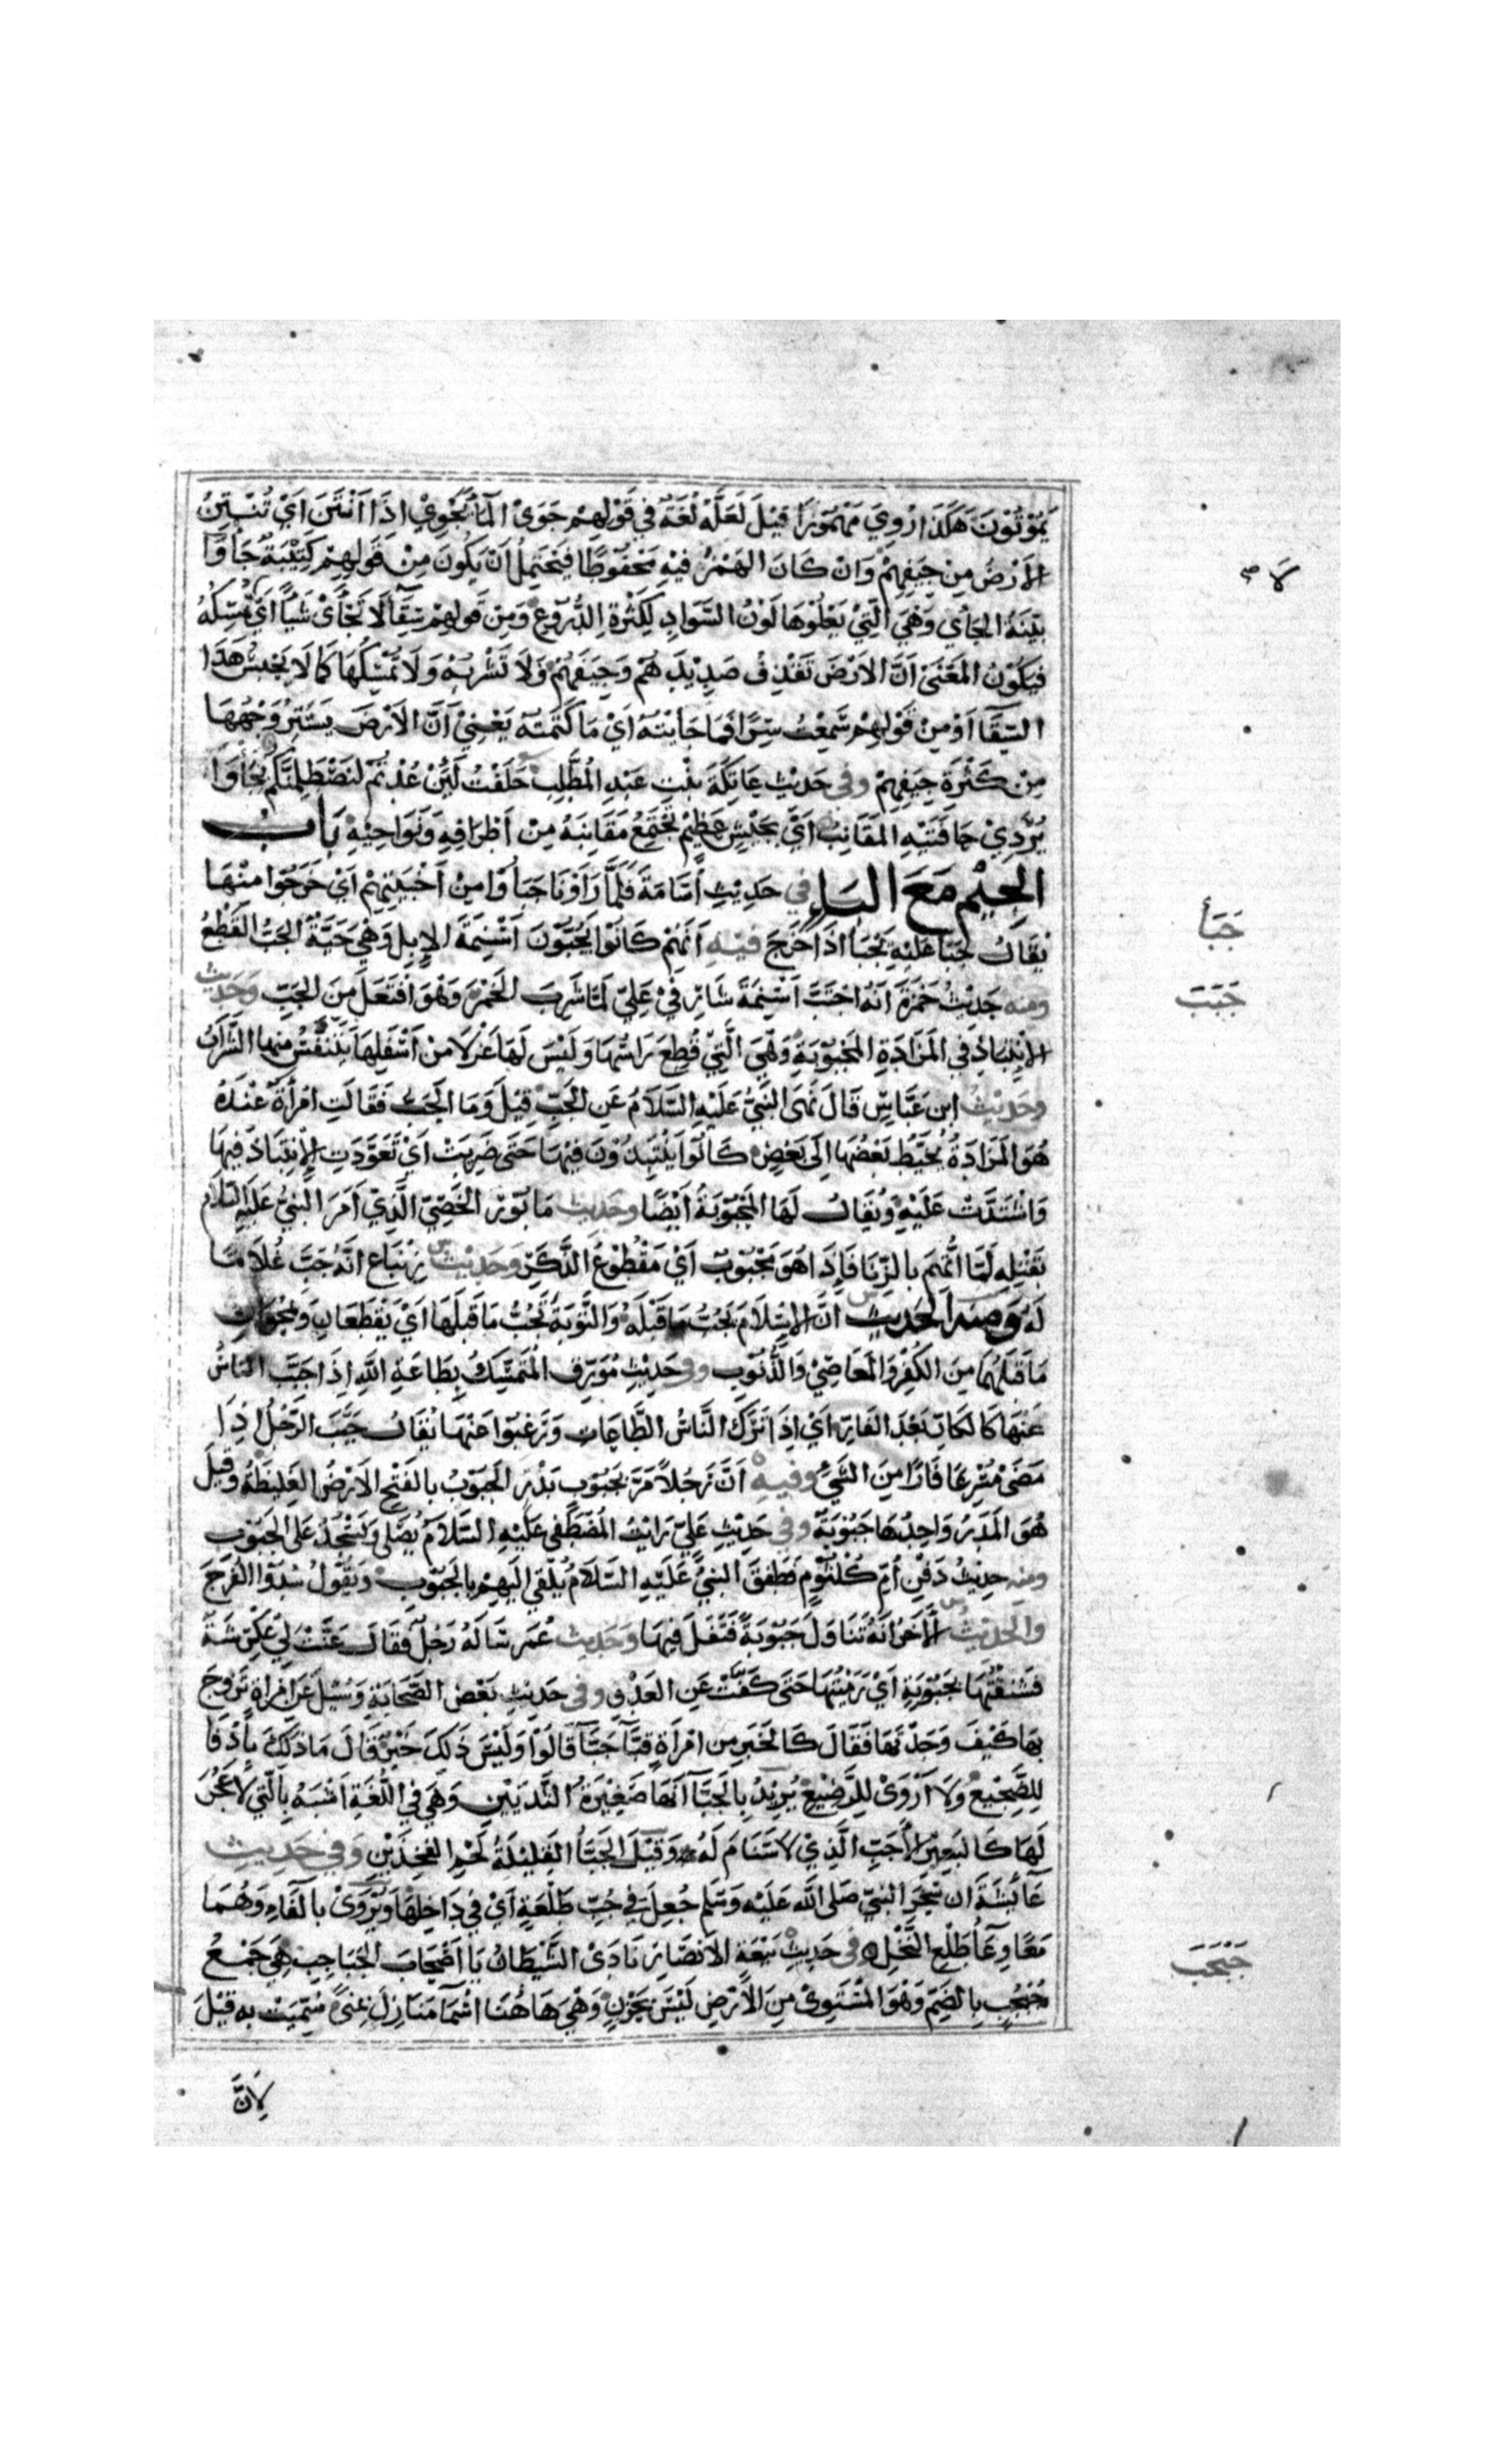 يَمُوْتُوْنَ هَكَذَا رُوِيَ مَهْمُوْزًا قِيْلَ لَعَلَّهُ لُغَةٌ فِي قَوْلِهِمْ جَوَى المَاءُ يَجْوِيْ اِذَا اَنْتَنَ اَيْ تُنْتِنُ
الاَرْضُ مِنْ جِيَفِهِمْ وَاِنْ كَانَ الهَمْزُ فِيْهِ مَحْفُوْظًا فَيَحْتَمِلُ اَنْ يَكُوْنَ مِنْ قَوْلِهِمْ كَتِيْبَةٌ جَأْوَا
بَيِّنَةُ الجَأْيِ وَهِيَ الَّتِيْ يَعْلُوْهَا لَوْنُ السَّوَادِ لِكَثْرَةِ الدُّرُوْعِ وَمِنْ قَوْلِهِمْ سِقَآ لَا يَجْأَى شَيْئًا اَيْ يُمْسِكُهُ
فَيَكُوْنُ المَعْنَى اَنَّ الاَرْضَ تَقْذِفُ صَدِيْدَهُمْ وَجِيَفَهُمْ وَلَا تَشْرَبُهُ وَلَا تُمْسِكُهَا كَمَا لَا يَحْبِسُ هَذَا
السِّقَآ اَوْ مِنْ قَوْلِهِمْ سَمِعْتُ سِرًّا فَمَا جَأَيْتُهُ اَيْ مَا كَتَمْتُهُ يَعْنِيْ اَنَّ الاَرْضَ يَسْتَتِرُ وَجْهُهَا
مِنْ كَثْرَةِ جِيَفِهِمْ وفي حَدِيْثِ عَاتِكَةَ بِنْتِ عَبْدِ المُطَّلِبِ حَلَفْتُ لَئِنْ عُدْتُمْ لَنَصْطَلِمَنَّكُمْ بِجَأْوَا
تُرْدِيْ حَافَتَيْهِ المَقَانِبُ اَيْ بِجَيْشٍ عَظِيْمٍ تَجْتَمِعُ مَقَانِبُهُ مِنْ اَطْرَافِهِ وَنَوَاحِيْهِ بَاب
الجِيْمِ مَعَ البَاءِ في حَدِيْثِ اُسَامَةَ فَلَمَّا رَاَوْنَا جَبَأُوْا مِنْ اَخْبِيَتِهِمْ اَيْ خَرَجُوْا مِنْهَا
يُقَالُ جَبَأَ عَلَيْهِ يَجْبَأُ اِذَا خَرَجَ فيه اَنَّهُمْ كَانُوْا يَجُبُّوْنَ اَسْنِمَةَ الاِبِلِ وَهِيَ حَيَّةٌ الجَبُّ القَطْعُ
ومنه حَدِيْثُ حَمْزَةَ اَنَّهُ اجْتَبَّ اَسْنِمَةَ شَارِفَيْ عَلِيٍّ لَمَّا شَرِبَ الخَمْرَ وَهُوَ افْتَعَلَ مِنَ الجَبِّ وَحَدِيْث
الاِنْتِبَاذِ فِي المَزَادَةِ المَجْبُوْبَةِ وَهِيَ الَّتِيْ قُطِعَ رَاسُهَا وَلَيْسَ لَهَا عَزْلَا مِنْ اَسْفَلِهَا يَتَنَفَّسُ مِنْهَا الشَّرَابُ
وحَدِيْثُ ابن عَبَّاسٍ قَالَ نَهَى النَّبِيُّ عَلَيْهِ السَّلَامُ عَنِ الجُبِّ قِيْلَ وَمَا الجُبُّ فَقَالَتِ امْرَأَةٌ عِنْدَهُ
هُوَ المَزَادَةُ يُخَيَّطُ بَعْضُهَا اِلَى بَعْضٍ كَانُوْا يَنْتَبِذُوْنَ فِيْهَا حَتَّى ضَرِيَتْ اَيْ تَعَوَّدَتِ الاِنْتِبَاذَ فِيْهَا
وَاشْتَدَّتْ عَلَيْهِ وَيُقَالُ لَهَا المَجْبُوْبَةُ اَيْضًا وحَدِيث مَابُوْرٍ الخَصِيِّ الَّذِيْ اَمَرَ النَّبِيُّ عَلَيْهِ السَّلَام
بِقَتْلِهِ لَمَّا اتُّهِمَ بِالزِّنَا فَاِذَا هُوَ مَجْبُوْبٌ اَيْ مَقْطُوْعُ الذَّكَرِ وَحَدِيْثُ زِنْبَاعٍ اَنَّهُ جَبَّ غُلَامًا
لَهُ وَمنه الحَديث اَنَّ الاِسْلَامَ يَجُبُّ مَا قَبْلَهُ وَالتَّوْبَةُ تَجُبُّ مَا قَبْلَهَا اَيْ يَقْطَعَانِ وَيَمْحُوَانِ
مَا قَبْلَهُمَا مِنَ الكُفْرِ وَالمَعَاصِيْ وَالذُّنُوْبِ وفي حَدِيْثِ مُوَرِّقٍ المُتَمَسِّكُ بِطَاعَةِ اللّهِ اِذَا جَبَّبَ النَّاسُ
عَنْهَا كَالكَارِّ بَعْدَ الفَارِّ اَيْ اِذَا تَرَكَ النَّاسُ الطَّاعَاتِ وَرَغِبُوْا عَنْهَا يُقَالُ جَبَّبَ الرَّجُلُ اِذَا
مَضَى مُسْرِعًا فَارًّا مِنَ الشَّيْءِ وفيه اَنَّ رَجُلًا مَرَّ بِجَبُوْبِ بَدْرٍ الجَبُوْبُ بِالفَتْحِ الاَرْضُ الغَلِيْظَةُ وَقِيْلَ
هُوَ المَدَرُ وَاحِدُهَا جَبُوْبَةٌ وفي حَدِيْثِ عَلِيٍّ رَايْتُ المُصْطَفَى عَلَيْهِ السَّلَامُ يُصَلِّي وَيَسْجُدُ عَلَى الجَبُوْبِ
ومنه حَدِيْثُ دَفْنِ اُمِّ كُلْثُوْمٍ فَطَفِقَ النَّبِيُّ عَلَيْهِ السَّلَامُ يُلْقِي اِلَيْهِمْ بِالجَبُوْبِ وَيَقُوْلُ سُدُّوْا الفُرَجَ
والحَدِيْثُ الاٰخَرُ اَنَّهُ تَنَاوَلَ جَبُوْبَةً فَتَفَلَ فِيْهَا وَحَدِيث عُمَرَ سَالَهُ رَجُلٌ فَقَالَ عَنَّتْ لِيْ عِكْرِشَةٌ
فَشَنَقْتُهَا بِجَبُوْبَةٍ اَيْ رَمَيْتُهَا حَتَّى كَفَّتْ عَنِ العَدْوِ وفي حَدِيْثِ بَعْضِ الصَّحَابَةِ وَسُئِلَ عَنِ امْرَاَةٍ تَزَوَّجَ
بِهَا كَيْفَ وَجَدْتَهَا فَقَالَ كَالخَيْرِ مِنِ امْرَاَةٍ قَبَّآ جَبَّآ قَالُوْا وَلَيْسَ ذَلِكَ خَيْرٌ قَالَ مَا ذَلِكَ بِاَدْفَا
لِلضَّجِيْعِ وَلَا اَرْوَى لِلرَّضِيْعِ يُرِيْدُ بِالجَبَّآ اَنَّهَا صَغِيْرَةُ الثَّدْيَيْنِ وَهِيَ فِي اللُّغَةِ اَشْبَهُ بِالَّتِي لَا عَجُزَ
لَهَا كَالبَعِيْرِ الاَجَبِّ الَّذِيْ لَا سَنَامَ لَهُ وَقِيْلَ الجَبَّاُ القَلِيْلَةُ لَحْمِ الفَخِذَيْنِ وَفي حَدِيْثِ
عَآئِشَةَ اَن سِحْرَ النَّبِيِّ صَلَّى اللّه عَلَيْهِ وَسَلم جُعِلَ فِيْ جُبِّ طَلْعَةٍ اَيْ فِيْ دَاخِلِهَا وَيُرْوَى بِالفَاءِ وَهُمَا
مَعًا وِعَآءُ طَلْعِ النَّخْلِ في حَدِيْثِ بَيْعَةِ الاَنْصَارِ نَادَى الشَّيْطَانُ يَا اَصْحَابَ الجَبَاجِبِ هِيَ جَمْعُ
جُبْجُبٍ بِالضَّمِّ وَهُوَ المُسْتَوِيْ مِنَ الاَرْضِ لَيْسَ بِحَزْنٍ وَهِيَ هَاهُنَا اَسْمَآ مَنَازِلَ بِمِنًى سُمِّيَتْ بِهِ قِيْلَ
لِاَنَّ
لا صح
جَبَأَ
جَبَبَ
جَبْجَبَ